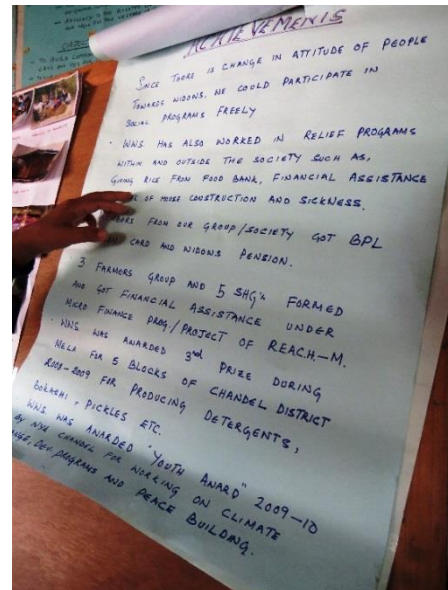 ACHIEVEMENTS
SINCE THERE IS CHANGE IN ATTITUDE OF PEOPLE
TOWARDS WIDOWS. WE COULD PARTICIPATE IN
SOCIAL PROGRAMS FREELY
· WNS HAS ALSO WORKED IN RELIEF PROGRAMS
WITHIN AND OUTSIDE THE SOCIETY SUCH AS,
GIVING RICE FROM FOOD BANK, FINANCIAL ASSISTANCE
OF HOUSE CONSTRUCTION AND SICKNESS.
FROM OUR GROUP/SOCIETY GOT BPL
CARD AND WIDOWS PENSION.
3 FARMERS GROUP AND 5 SHG'S FORMED
AND GOT FINANCIAL ASSISTANCE UNDER
MICRO FINANCE PROG./PROJECT OF REACH-M.
· WNS WAS AWARDED 3RD PRIZE DURING
MELA FOR 5 BLOCKS OF CHANDEL DISTRICT
2008-2009 FOR PRODUCING DETERGENTS,
BOKASHI, PICKLES ETC.
WNS WAS AWARDED "YOUTH AWARD" 2009-10
BY NYK CHANDEL FOR WORKING ON CLIMATE
DEV. PROGRAMS AND PEACE BUILDING.